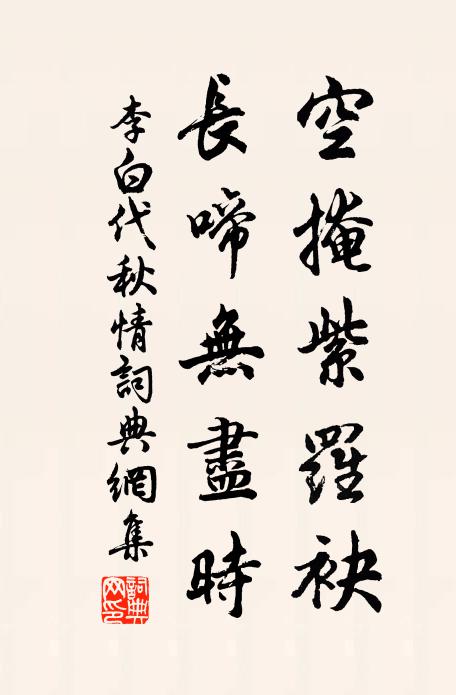 空掩紫羅袂
長啼無盡時
李白代秋情詞典網集
詞典網印